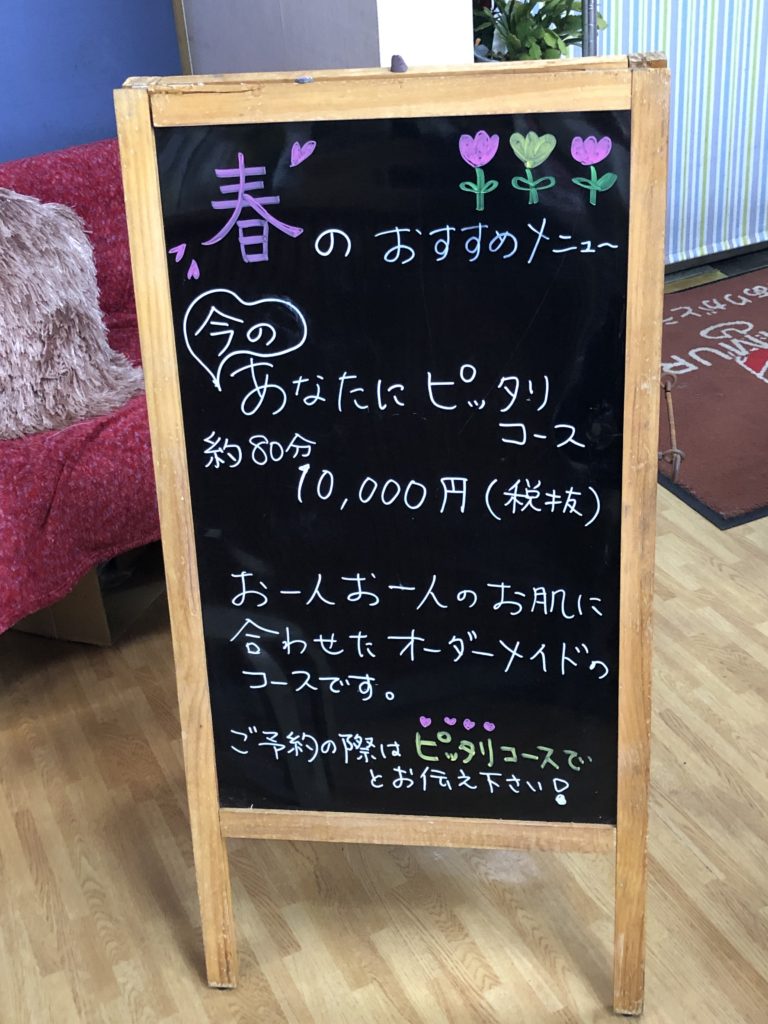 春のおすすめメニュー
今の
あなたにピッタリ
コース
約80分
10,000円(税抜)
お一人お一人のお肌に
合わせたオーダーメイドの
コースです。
ご予約の際はピッタリコースで
とお伝え下さい!